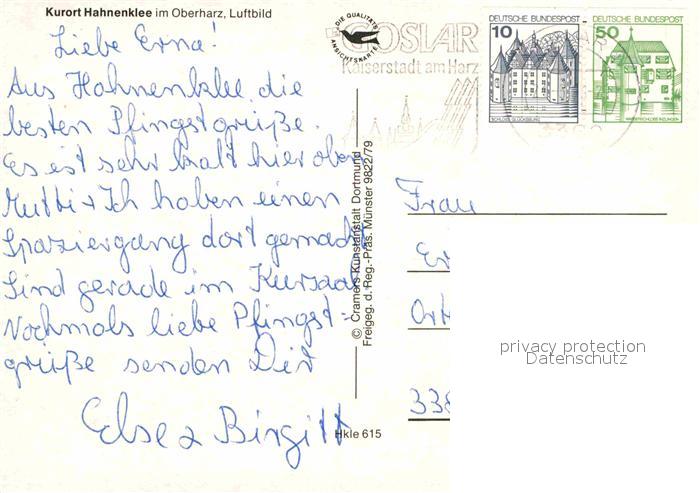 Kurort Hahnenklee im Oberharz, Luftbild
Liebe Erna!
Aus Hahnenklee die
besten Pfingstgrüße.
Es ist sehr kalt hier oben
Mutti + Ich haben einen
Spaziergang dort gemacht
Sind gerade im Kursaal
Nochmals liebe Pfingst=
grüße senden Dir
Else & Birgitt
DIE QUALITÄTS
ANSICHTSKARTE
GOSLAR
Kaiserstadt am Harz
DEUTSCHE BUNDESPOST
10
SCHLOSS GLÜCKSBURG
DEUTSCHE BUNDESPOST
50
WASSERSCHLOSS INZLINGEN
© Cramers Kunstanstalt Dortmund
Freigeg. d. Reg.-Präs. Münster 9822/79
Hkle 615
Frau
Er
Ort
338
privacy protection
Datenschutz